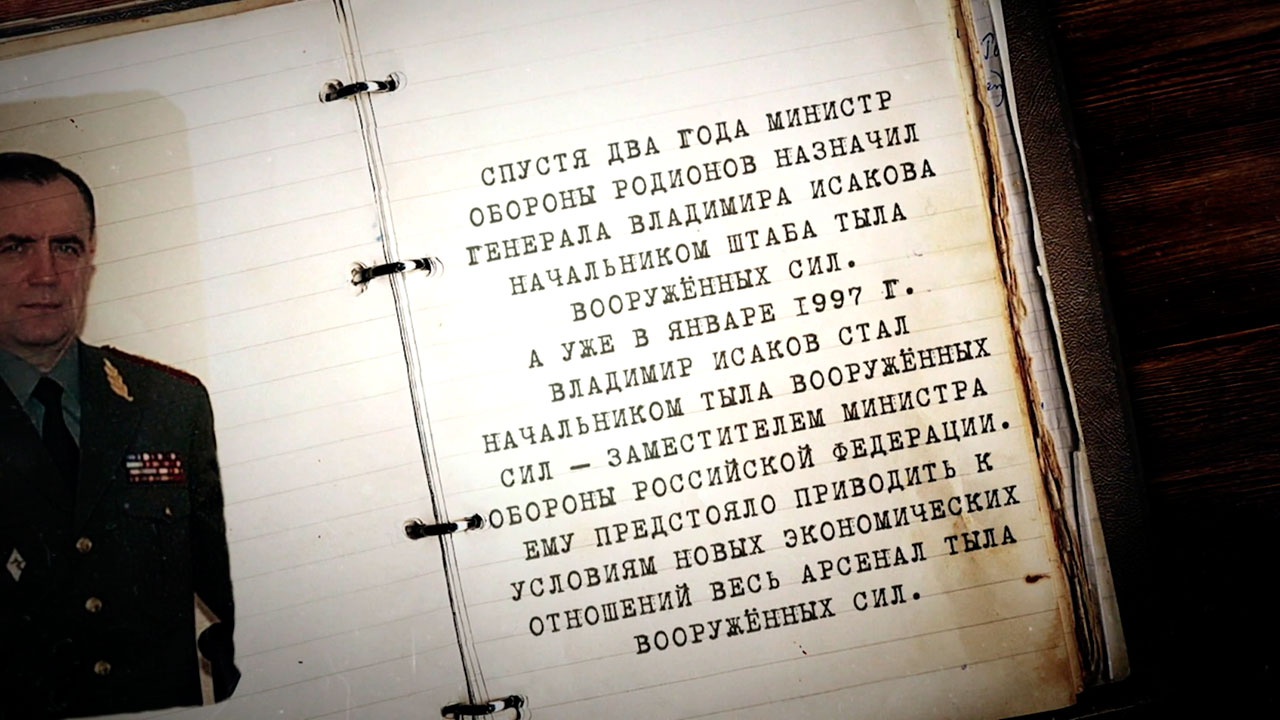 СПУСТЯ ДВА ГОДА МИНИСТР
ОБОРОНЫ РОДИОНОВ НАЗНАЧИЛ
ГЕНЕРАЛА ВЛАДИМИРА ИСАКОВА
НАЧАЛЬНИКОМ ШТАБА ТЫЛА
ВООРУЖЁННЫХ СИЛ.
А УЖЕ В ЯНВАРЕ 1997 Г.
ВЛАДИМИР ИСАКОВ СТАЛ
НАЧАЛЬНИКОМ ТЫЛА ВООРУЖЁННЫХ
СИЛ – ЗАМЕСТИТЕЛЕМ МИНИСТРА
ОБОРОНЫ РОССИЙСКОЙ ФЕДЕРАЦИИ.
ЕМУ ПРЕДСТОЯЛО ПРИВОДИТЬ К
УСЛОВИЯМ НОВЫХ ЭКОНОМИЧЕСКИХ
ОТНОШЕНИЙ ВЕСЬ АРСЕНАЛ ТЫЛА
ВООРУЖЁННЫХ СИЛ.